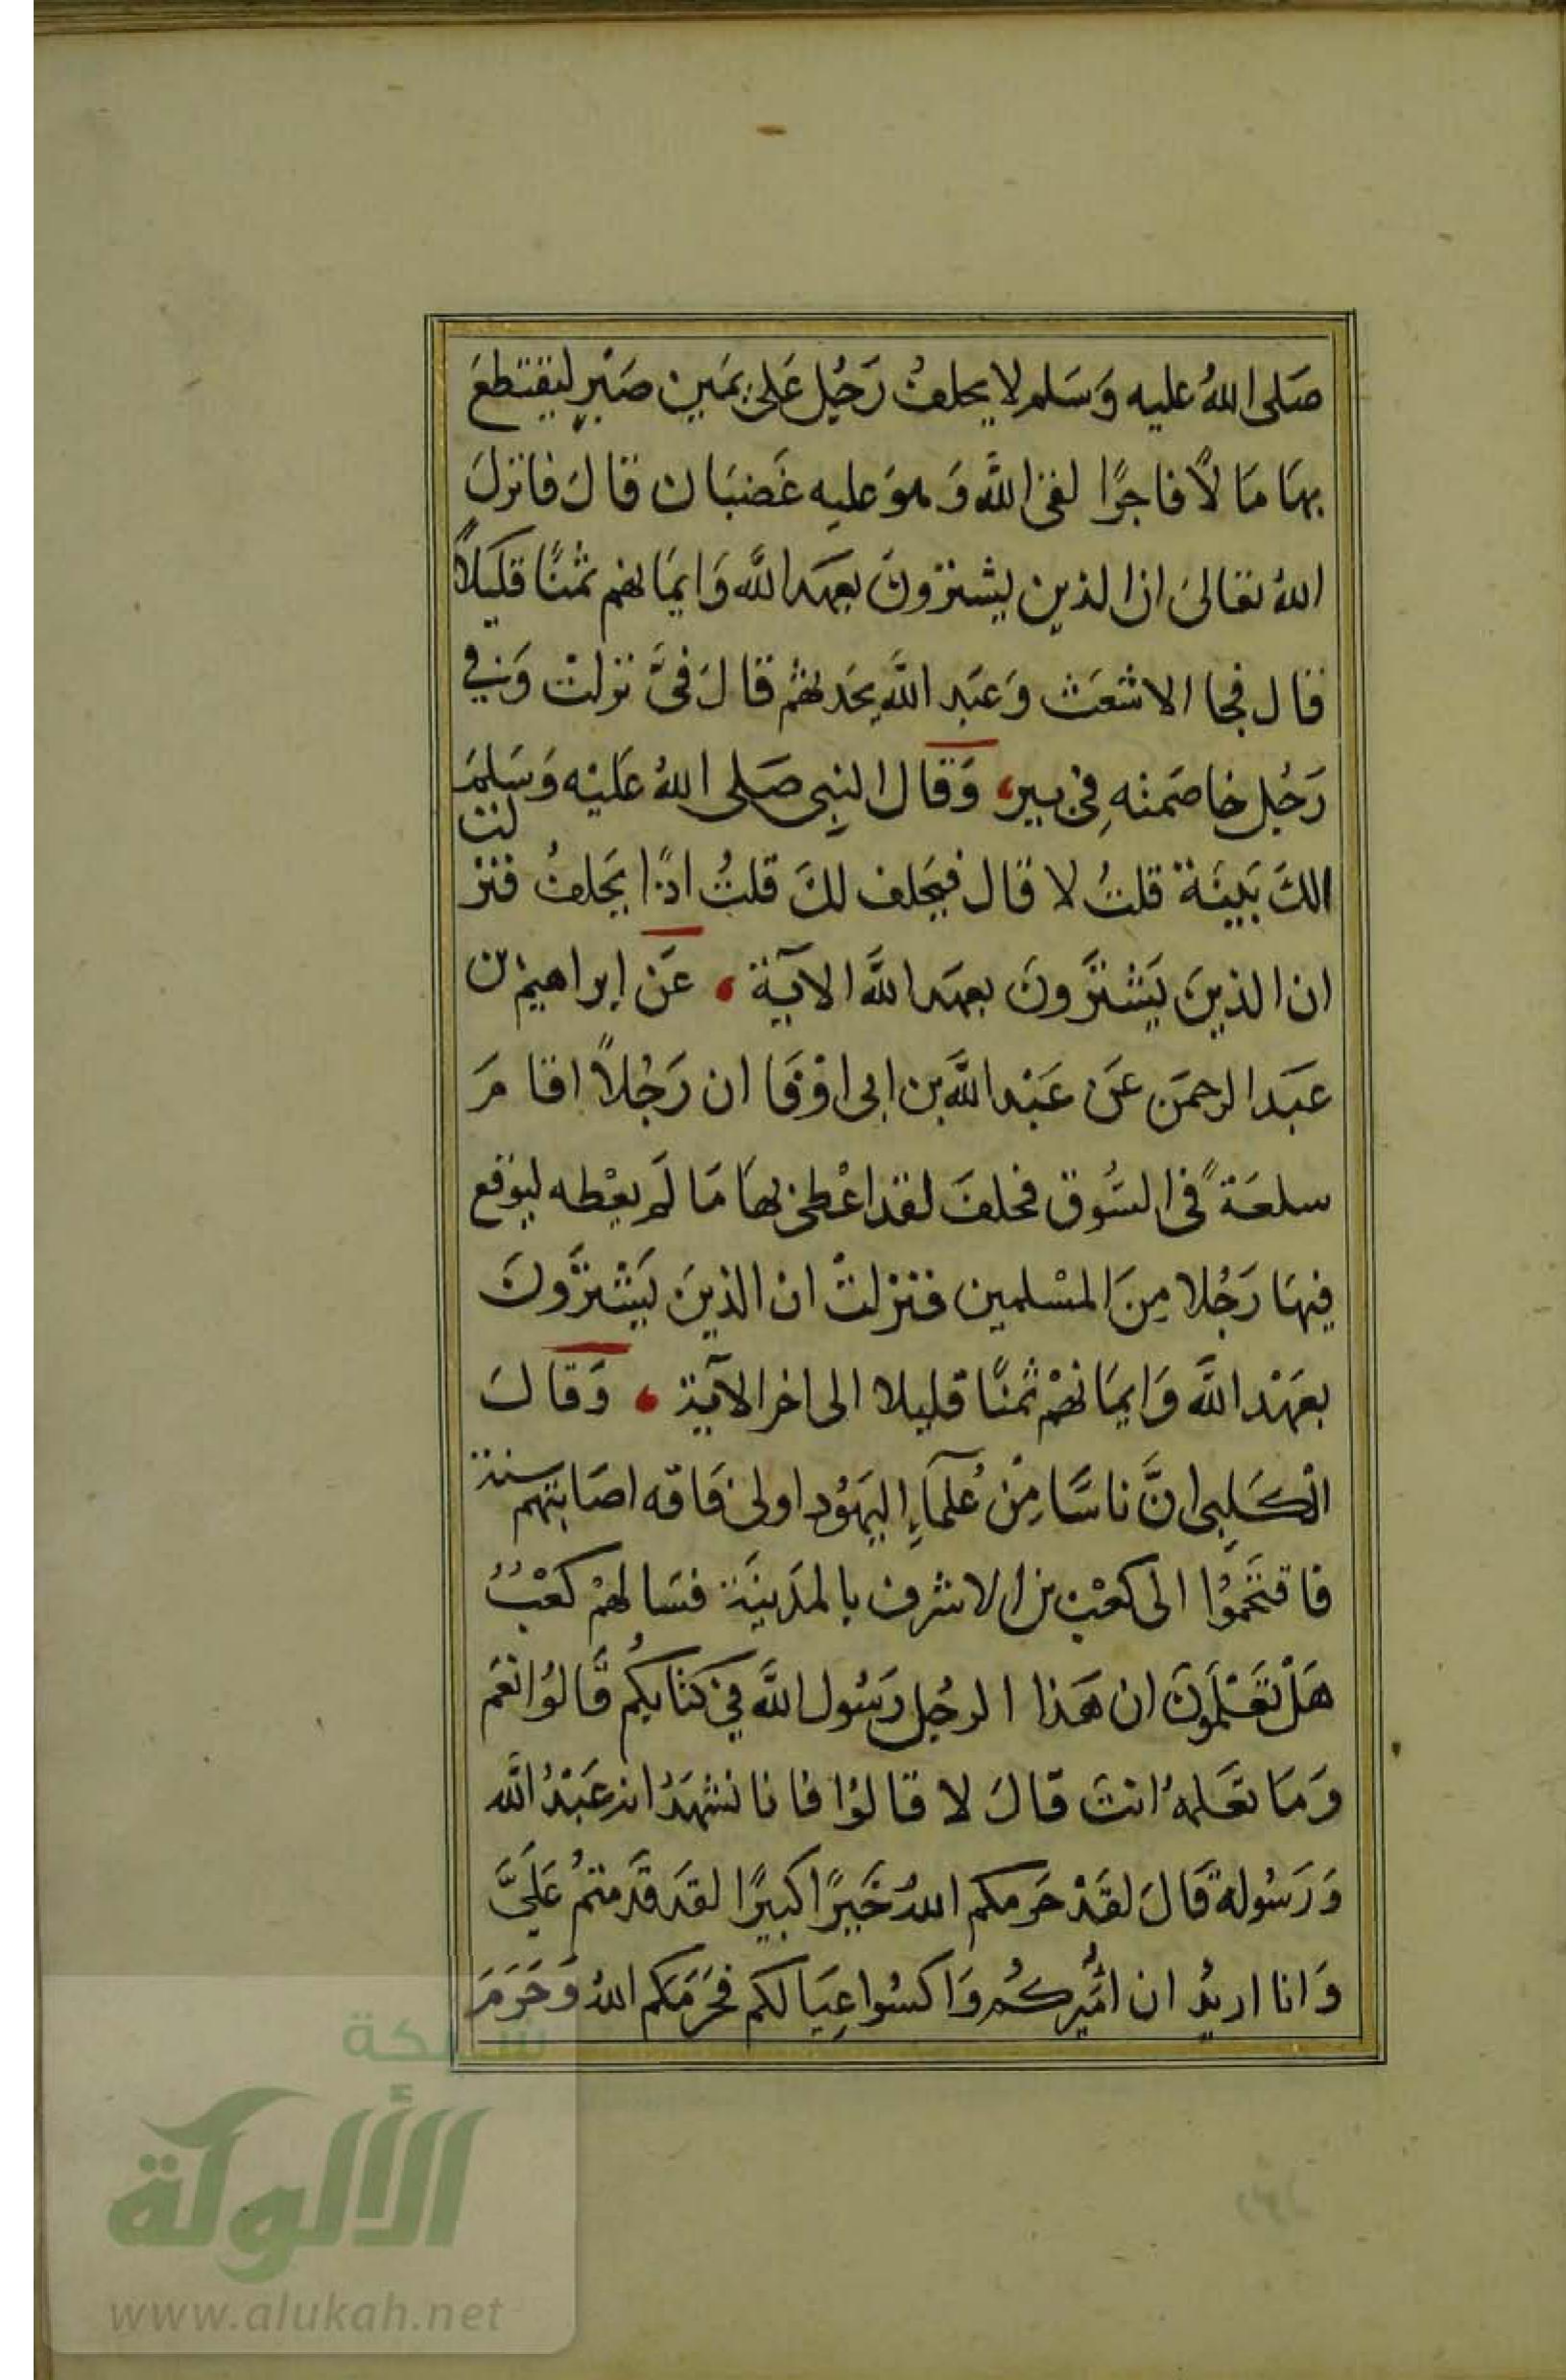 صَلى اللهُ عليه وَسَلم لا يحلفُ رَجُل عَلى يمَين صَبْرٍ ليقتطعَ
بهَا مَا لاً فاجرًا لقى اللهَ وَهوَ عليه غَضبَان قالَ فانزلَ
اللهُ تعَالىَ ان الذين يشترونَ بعهَد اللهَ وَايمَانهم ثمنًا قليلاً
قال فجا الاشعَث وَعَبد اللهَ يحَدثهُم قالَ فىَّ نزلتْ وَفي
رَجُل خاصَمته فِى بير، وَقال النبِى صَلى اللهُ عَليْه وَسَلمَ
الكَ بَينَة قلتُ لا قال فيَحلف لكَ قلتُ اذًا يَحلفُ فنزلت
ان الذينَ يَشترَونَ بعهَد اللهَ الآية ، عَن إبراهيم بن
عبَد الرحمَن عَن عَبْد اللهَ بن ابى اوْفَا ان رَجُلاً اقامَ
سلعَةً فى السُّوق فحلفَ لقد اعْطى بهَا مَا لَم يعْطه ليوقع
فيهَا رَجُلا مِنَ المسْلمين فنزلتْ ان الذينَ يَشترَونَ
بعَهْد اللهَ وَايمَانهُمْ ثمنًا قليلا الى اخر الآية ، وَقالَ
الْكَلبِى انَّ ناسًا مِنْ عُلمَآءِ اليَهوُد اولى فَاقه اصَابتهم سنة
فاقتَحَموُا الى كعْب بن الاشرف بالمدَينَة فسَالهمْ كعْبٌ
هَلْ تعَلمَونَ ان هَذا الرجُل رَسُول اللهَ فِى كتابكُم قَالوُا نعَم
وَمَا تعَلمهُ انتَ قالَ لا قالوُا فانا نشهَدُ انه عَبْدُ اللهَ
وَرَسُولهُ قَالَ لقَدْ حَرمكم اللهُ خَيرًا كبيرًا لقد قَدمتمُ عَلَىَّ
وَانا اريدُ ان امُيركُم وَاكسُوا عِيَالكم فحَرَمَكم اللهُ وَحَرَمَ
شبكة
الألوكة
www.alukah.net